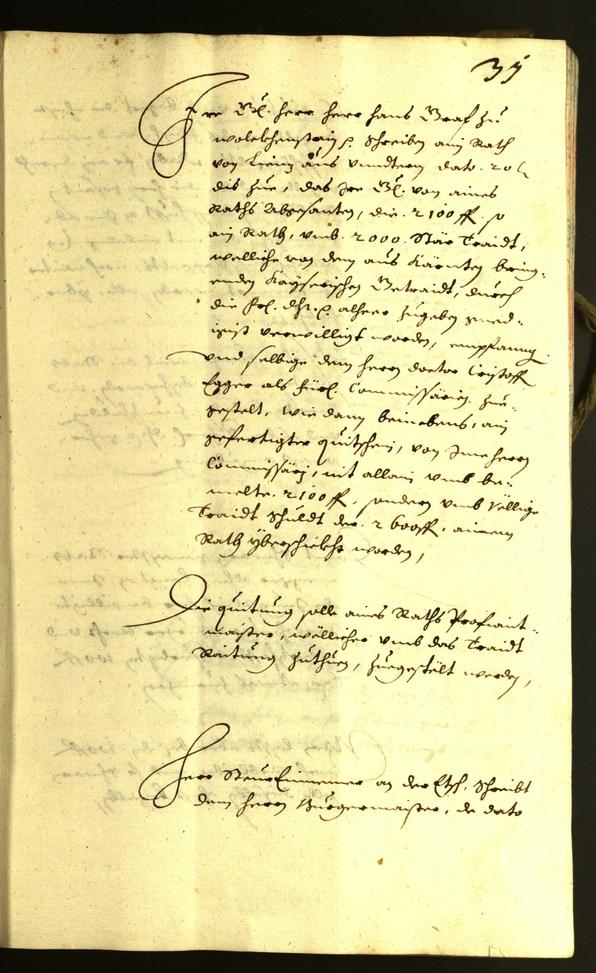 35
Ire Gl. herr herr hans Graf zu
wolckhenstain p. schreiben ain Rath
von Lienz aus vnndterm dato. 20
dis zue, das Ire Gl. von aines
Raths Abgesanten, die. 2100 ff. so
ain Rath, vmb. 2000. Stär Traidt,
welliche von dem aus Kärnten bring-
enden Kayserischen Getraidt, durch
die frl. dht. p. alheer zugeben gned-
igist verwilligt worden, empfanng
vnd selbige dem herrn doctor Cristoff
Egger als fürl. Commissärien zue-
gestelt, wie dann beinebens, ain
gefertigter quitschein, von Ime herrn
Commissärj, nit allain vmb be-
melte. 2100 ff. sondern vmb völlige
Traidt schuldt der. 2600 ff. ainem
Rath yberschickht worden,
Die quitung solle aines Raths Profiant-
maister, wellicher vmb das Traidt
Raitung zuthuen, zuegestelt werden,
Herr Steur Einnemer an der Etsch, schreibt
dem herrn Burgermaister, de dato